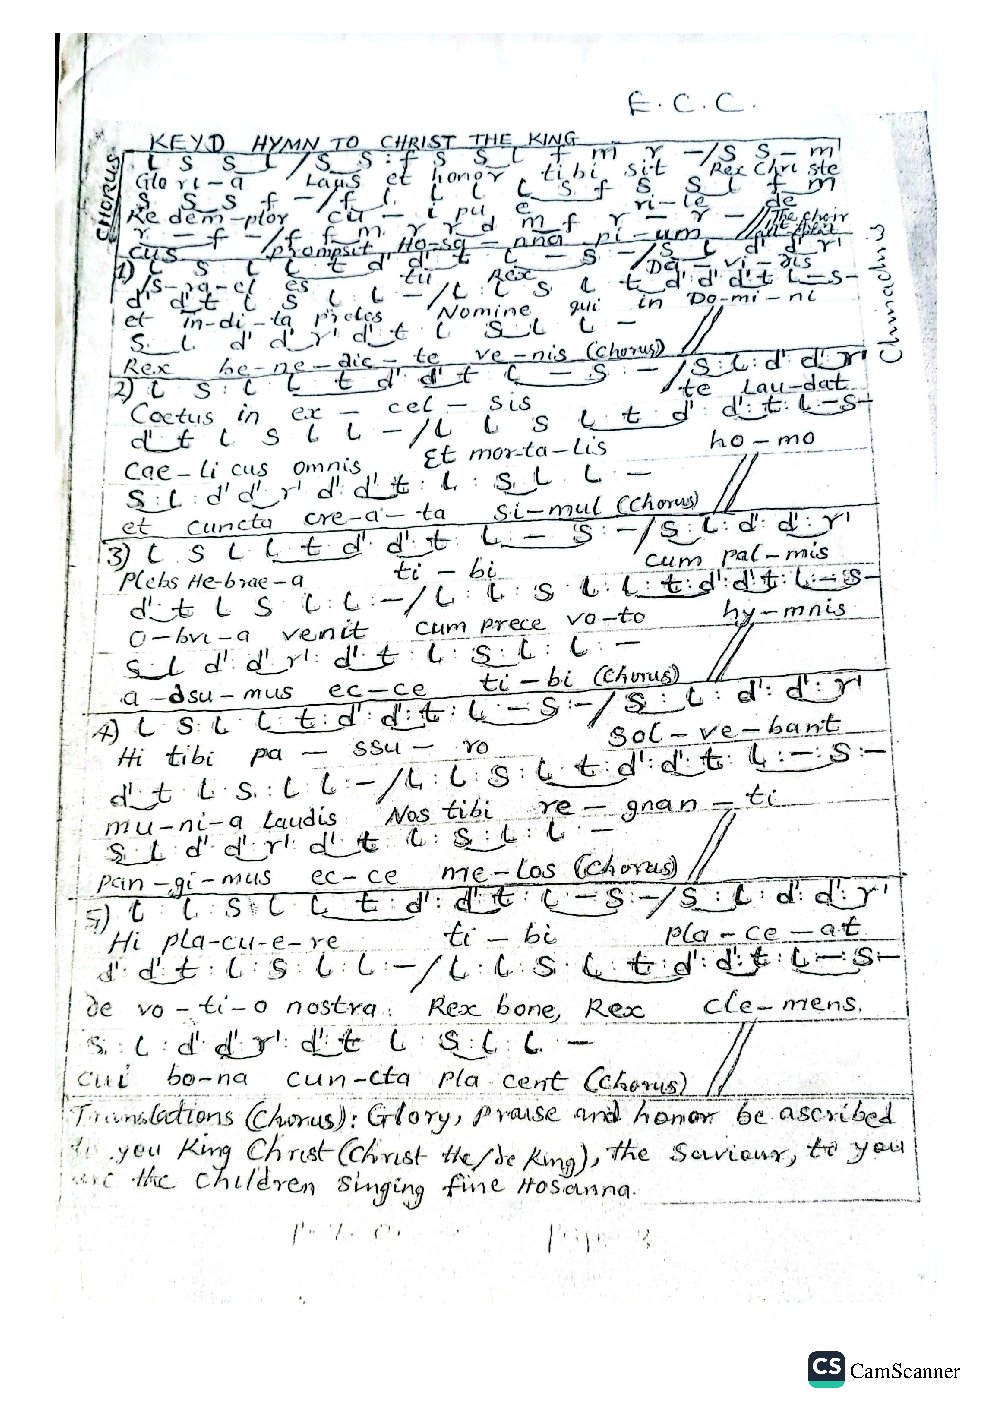 F.C.C.
KEY D HYMN TO CHRIST THE KING
CHORUS
l s s l / s s : f s s l f m r - / s s - m
Glo ri - a Laus et honor tibi sit Rex Chri ste
s s s f - / f l l l l s f s s l f m
Re dem - ptor cu - i pu e ri - le de
r - f - / f f m r r d m f r - r - // The choir
cus prompsit Ho - sa - nna pi - um
1) l s l l t d' d' t l - s - / s l d' d' r'
Is - ra - el es tu Rex Da - vi - dis
d' d' t l s l l - / l l s l t d' d' d' t l - s -
et in - di - ta proles Nomine qui in Do - mi - ni
s l d' d' r' d' t l s l l -
Rex be - ne - dic - te ve - nis (Chorus)
2) l s : l l t d' d' t l - s : - / s : l : d' d' r'
Coetus in ex - cel - sis te Lau - dat
d' t l s l l - / l l s l t d' d' : t : l - s -
Cae - li cus omnis Et mor - ta - lis ho - mo
s : l : d' d' r' d' : d' : t : l : s l l -
et cuncta cre - a - ta si - mul (Chorus)
3) l s l l t d' d' t l - s : - / s : l : d' : d' : r'
Plebs He - brae - a ti - bi cum pal - mis
d' : t l s l : l : - / l : l : s l : l : t : d' : d' t : l - s -
O - bvi - a venit cum prece vo - to hy - mnis
s l d' : d' : r' : d' : t : l : s : l : l : -
a - dsu - mus ec - ce ti - bi (Chorus)
4) l s l l t : d' : d' : t : l - s : - / s : l : d' : d' : r'
Hi tibi pa - ssu - ro sol - ve - bant
d' t l s : l : l : - / l : l : s : l t : d' : d' t l : - s : -
mu - ni - a laudis Nos tibi re - gnan - ti
s l d' d' r' : d' t l : s : l : l : -
pan - gi - mus ec - ce me - los (Chorus)
5) l l s l l t : d' : d' t : l - s : - / s : l : d' : d' : r'
Hi pla - cu - e - re ti - bi pla - ce - at
d' : d' t : l : s : l : l : - / l : l : s l t : d' : d' : t l - s -
de vo - ti - o nostra : Rex bone, Rex cle - mens.
s : l : d' d' r' : d' t l s : l : l -
cui bo - na cun - cta pla cent (Chorus)
Translations (Chorus): Glory, praise and honor be ascribed
you King Christ (Christ the/de King), the Saviour, to you
the children singing fine Hosanna.
CS CamScanner